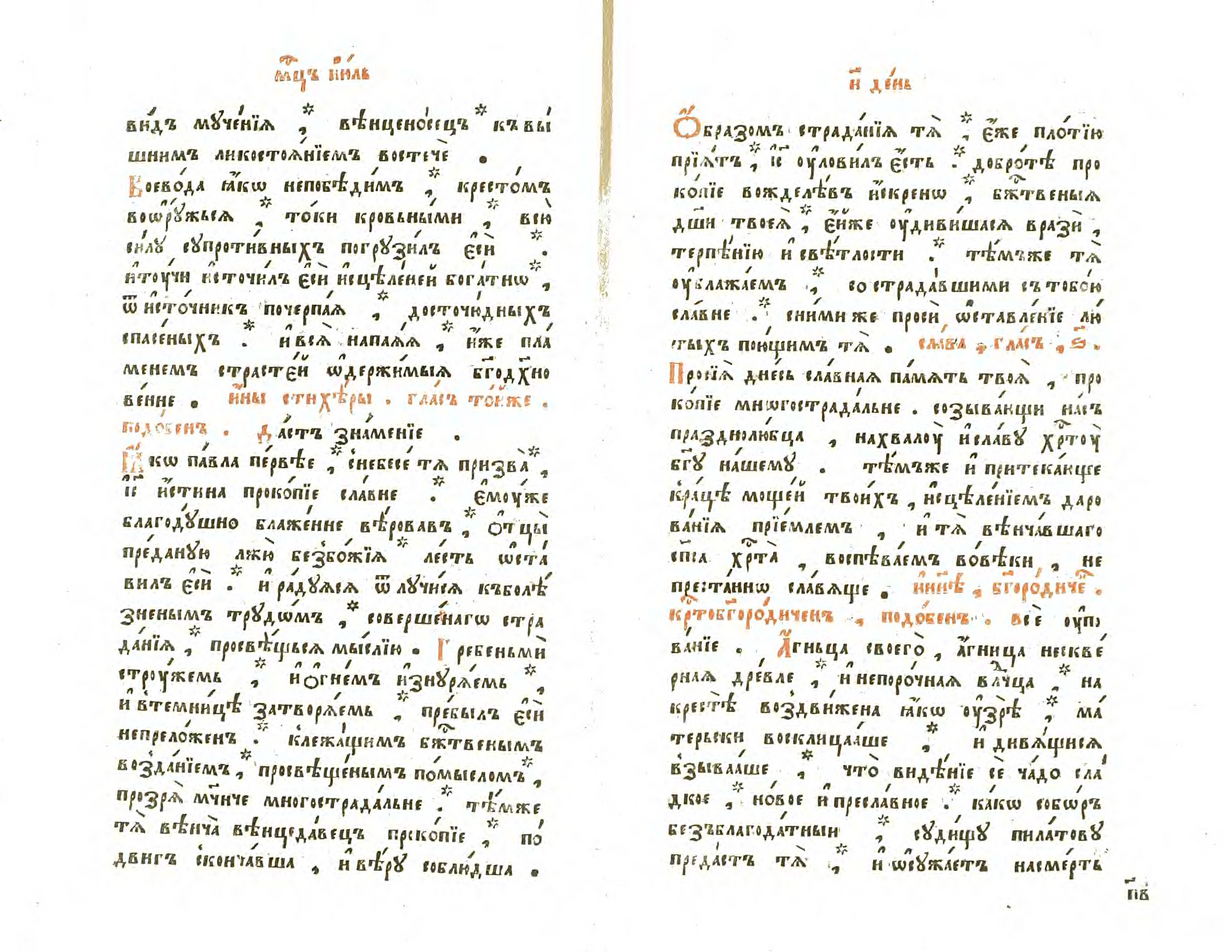 мц҃ъ їюль
ви́дъ мꙋче́нїѧ , вѣнцено́сецъ * къ вы́
шнимъ ликостоѧ́нїемъ востечѐ .
Воево́да ꙗ҆́кѡ непобѣди́мъ , кресто́мъ
воѡрꙋ́жьсѧ , то́ки кро́вьными , всю̀
си́лꙋ сꙋпроти́вныхъ погрꙋзи́лъ є҆сѝ .
и҆ то́ꙋчи и҆сточи́лъ є҆сѝ и҆сцѣле́ней бога́тнѡ ,
ѿ и҆сто́чникъ почерпа́ѧ , досточю́дныхъ
спасе́ныхъ . и҆ всѧ̀ напаѧ́ѧ , и҆́же пла́
менемъ страсте́й ѡ҆держи́мыѧ бг҃одх҃но
ве́нне . и҆́ны стихѣ́ры . гла́съ то́йже .
подо́бенъ . да́стъ зна́менїе .
Ꙗ҆́кѡ па́вла пе́рвѣе , с̾небесѐ тѧ призва̀ ,
і҆с҃ и҆́стина проко́пїе сла́вне . є҆мꙋ́же
благодꙋ́шно блаже́нне вѣ́ровавъ , ѻ҆тцы̀
пре́данꙋю лжю̀ безбо́жїѧ * ле́сть ѡ҆ста́
вилъ є҆сѝ . и҆ ра́дꙋѧсѧ ѿлꙋчи́сѧ къ болѣ́
зненымъ трꙋдѡ́мъ , * соверше́нагѡ стра
да́нїѧ , просвѣ́щьсѧ мы́слїю . Гребеньмѝ
строꙋ́жемь , и҆ ѻ҆гне́мъ и҆знꙋрѧ́емь ,
и҆ в̾темни́цѣ затворѧ́емь , пребы́лъ є҆сѝ
непрело́женъ . к̾лежа́щимъ бж҃твенымъ
возда́нїемъ , просвѣще́нымъ по́мысломъ ,
прозрѧ̀ мч҃нче многострада́льне . тѣ́мже
тѧ̀ вѣнча̀ вѣнцеда́вецъ проко́пїе , по́
двигъ сконча́вша , и҆ вѣ́рꙋ соблю́дша .
и҃ де́нь
Ѻ҆́бразомъ страда́нїѧ тѧ̀ , є҆́же пло́тїю
прїѧ́тъ , і҆с҃ оу҆лови́лъ є҆́сть . добро́тѣ про
ко́пїе вожделѣ́въ и҆́скренѡ , бж҃твеныѧ
дш҃и твоеѧ̀ , є҆́йже оу҆диви́шасѧ вразѝ ,
терпѣ́нїю и҆ свѣ́тлости . тѣ́мъже тѧ̀
оу҆блажа́емъ , со страда́вшими съ тобо́ю
сла́вне . с ни́ми же просѝ ѡ҆ставле́нїе лю́
тыхъ пою́щимъ тѧ̀ . сла́ва , гла́съ , ѕ҃ .
Просїѧ̀ дне́сь сла́вная па́мять твоѧ̀ , про
ко́пїе мнѡгострада́льне . созыва́ющи на́съ
празднолю́бца , на хвалоу̀ и҆ сла́вꙋ хр҃тоу̀
бг҃ꙋ на́шемꙋ . тѣ́мъже и҆ притека́юще
к̾ра́цѣ моще́й твои́хъ , и҆сцѣле́нїемъ даро
ва́нїѧ прїе́млемъ , и҆ тѧ̀ вѣнча́вшаго
сп҃са хр҃та̀ , воспѣва́емъ во́вѣки , не
преста́ннѡ сла́вѧще . ны́нѣ , бг҃оро́диче .
кр҃тобг҃оро́диченъ , подо́бенъ . всѐ оу҆по
ва́нїе . А҆́гньца своего̀ , а҆́гница нескве́
рная дре́вле , и҆ непоро́чная вл҃чца , на
крестѣ̀ воздви́жена ꙗ҆́кѡ оу҆зрѣ̀ , ма́
терьски восклица́аше , и҆ дивѧ́щисѧ
взыва́аше , что̀ видѣ́нїе сѐ ча́до сла́
дкое , но́вое и҆ пресла́вное . ка́кѡ собѡ́ръ
безъблагода́тныи , сꙋди́щꙋ пила́товꙋ
преда́стъ тѧ̀ , и҆ ѡ҆сꙋжа́етъ на сме́рть
п҃в